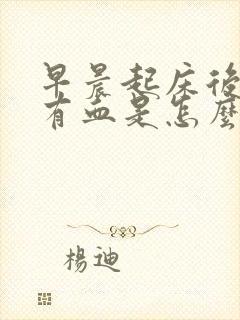 早晨起床後
有血是怎麼
楊迪